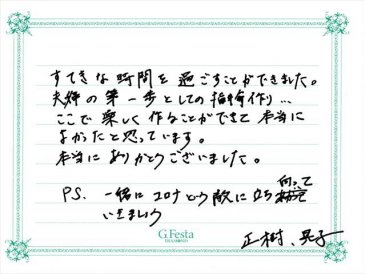 すてきな時間を過ごすことができました。
夫婦の第一歩としての指輪作り…
ここで楽しく作ることができて本当に
よかったと思っています。
本当にありがとうございました。
P.S. 一緒にコロナという敵に立ち向って
いきましょう
G.Festa
DIAMOND
正樹、晃子